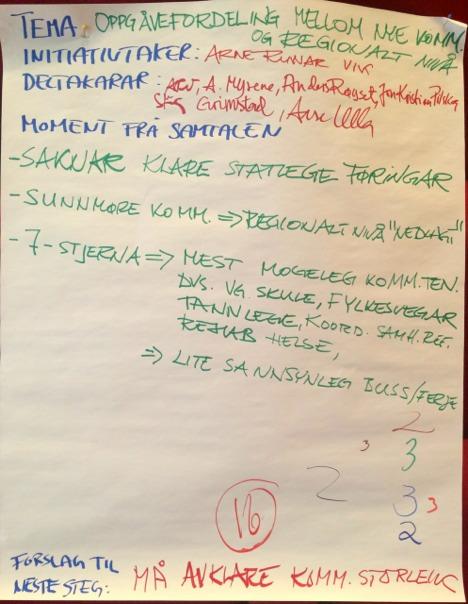 TEMA: OPPGÅVEFORDELING MELLOM NYE KOMM.
OG REGIONALT NIVÅ
INITIATIVTAKER: ARNE RUNAR VIK
DELTAKARAR: ARV, A. Myrene, Anders Røyset, Jon Kristian
Grimstad, Arne Ulla
MOMENT FRÅ SAMTALEN
- SAKNAR KLARE STATLEGE FØRINGAR
- SUNNMØRE KOMM. ⇒ REGIONALT NIVÅ "NEDLAGT"
- 7-STJERNA ⇒ MEST MOGELEG KOMM.TEN.
DVS. VG. SKULE, FYLKESVEGAR
TANNLEGE, KOORD. SAMH. REF.
REHAB HELSE,
⇒ LITE SANNSYNLEG BUSS/FERJE
2
3 3
2 3 3
2
16
FORSLAG TIL
NESTE STEG: MÅ AVKLARE KOMM. STØRLEIK